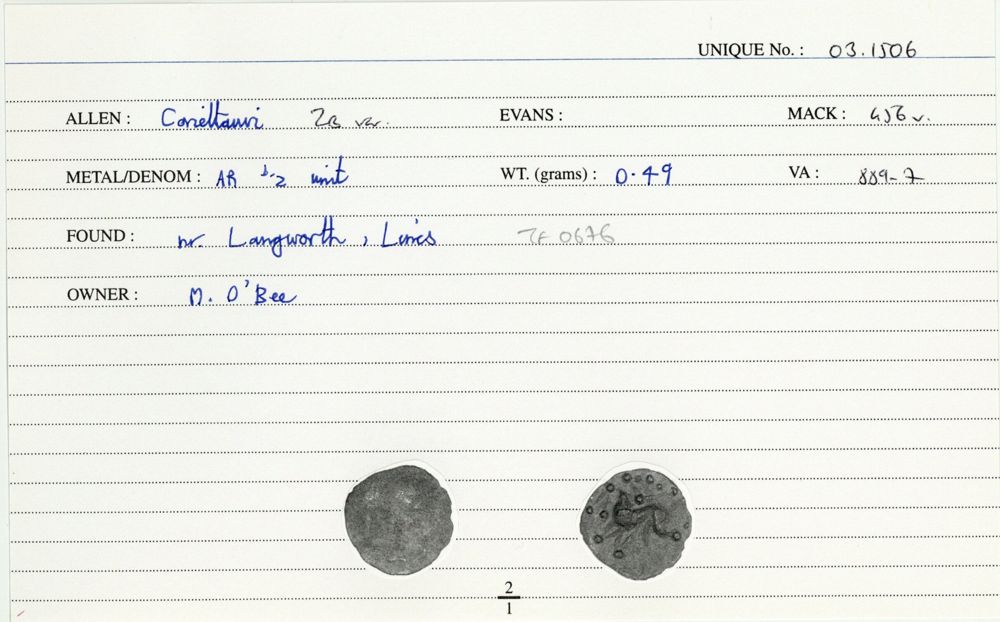 UNIQUE No. : 03.1506
ALLEN : Corieltauvi ZB var. EVANS : MACK : 456 v.
METAL/DENOM : AR ½ unit WT. (grams) : 0.49 VA : 889-7
FOUND : nr. Langworth, Lincs TF 0676
OWNER : M. O'Bee
2
1